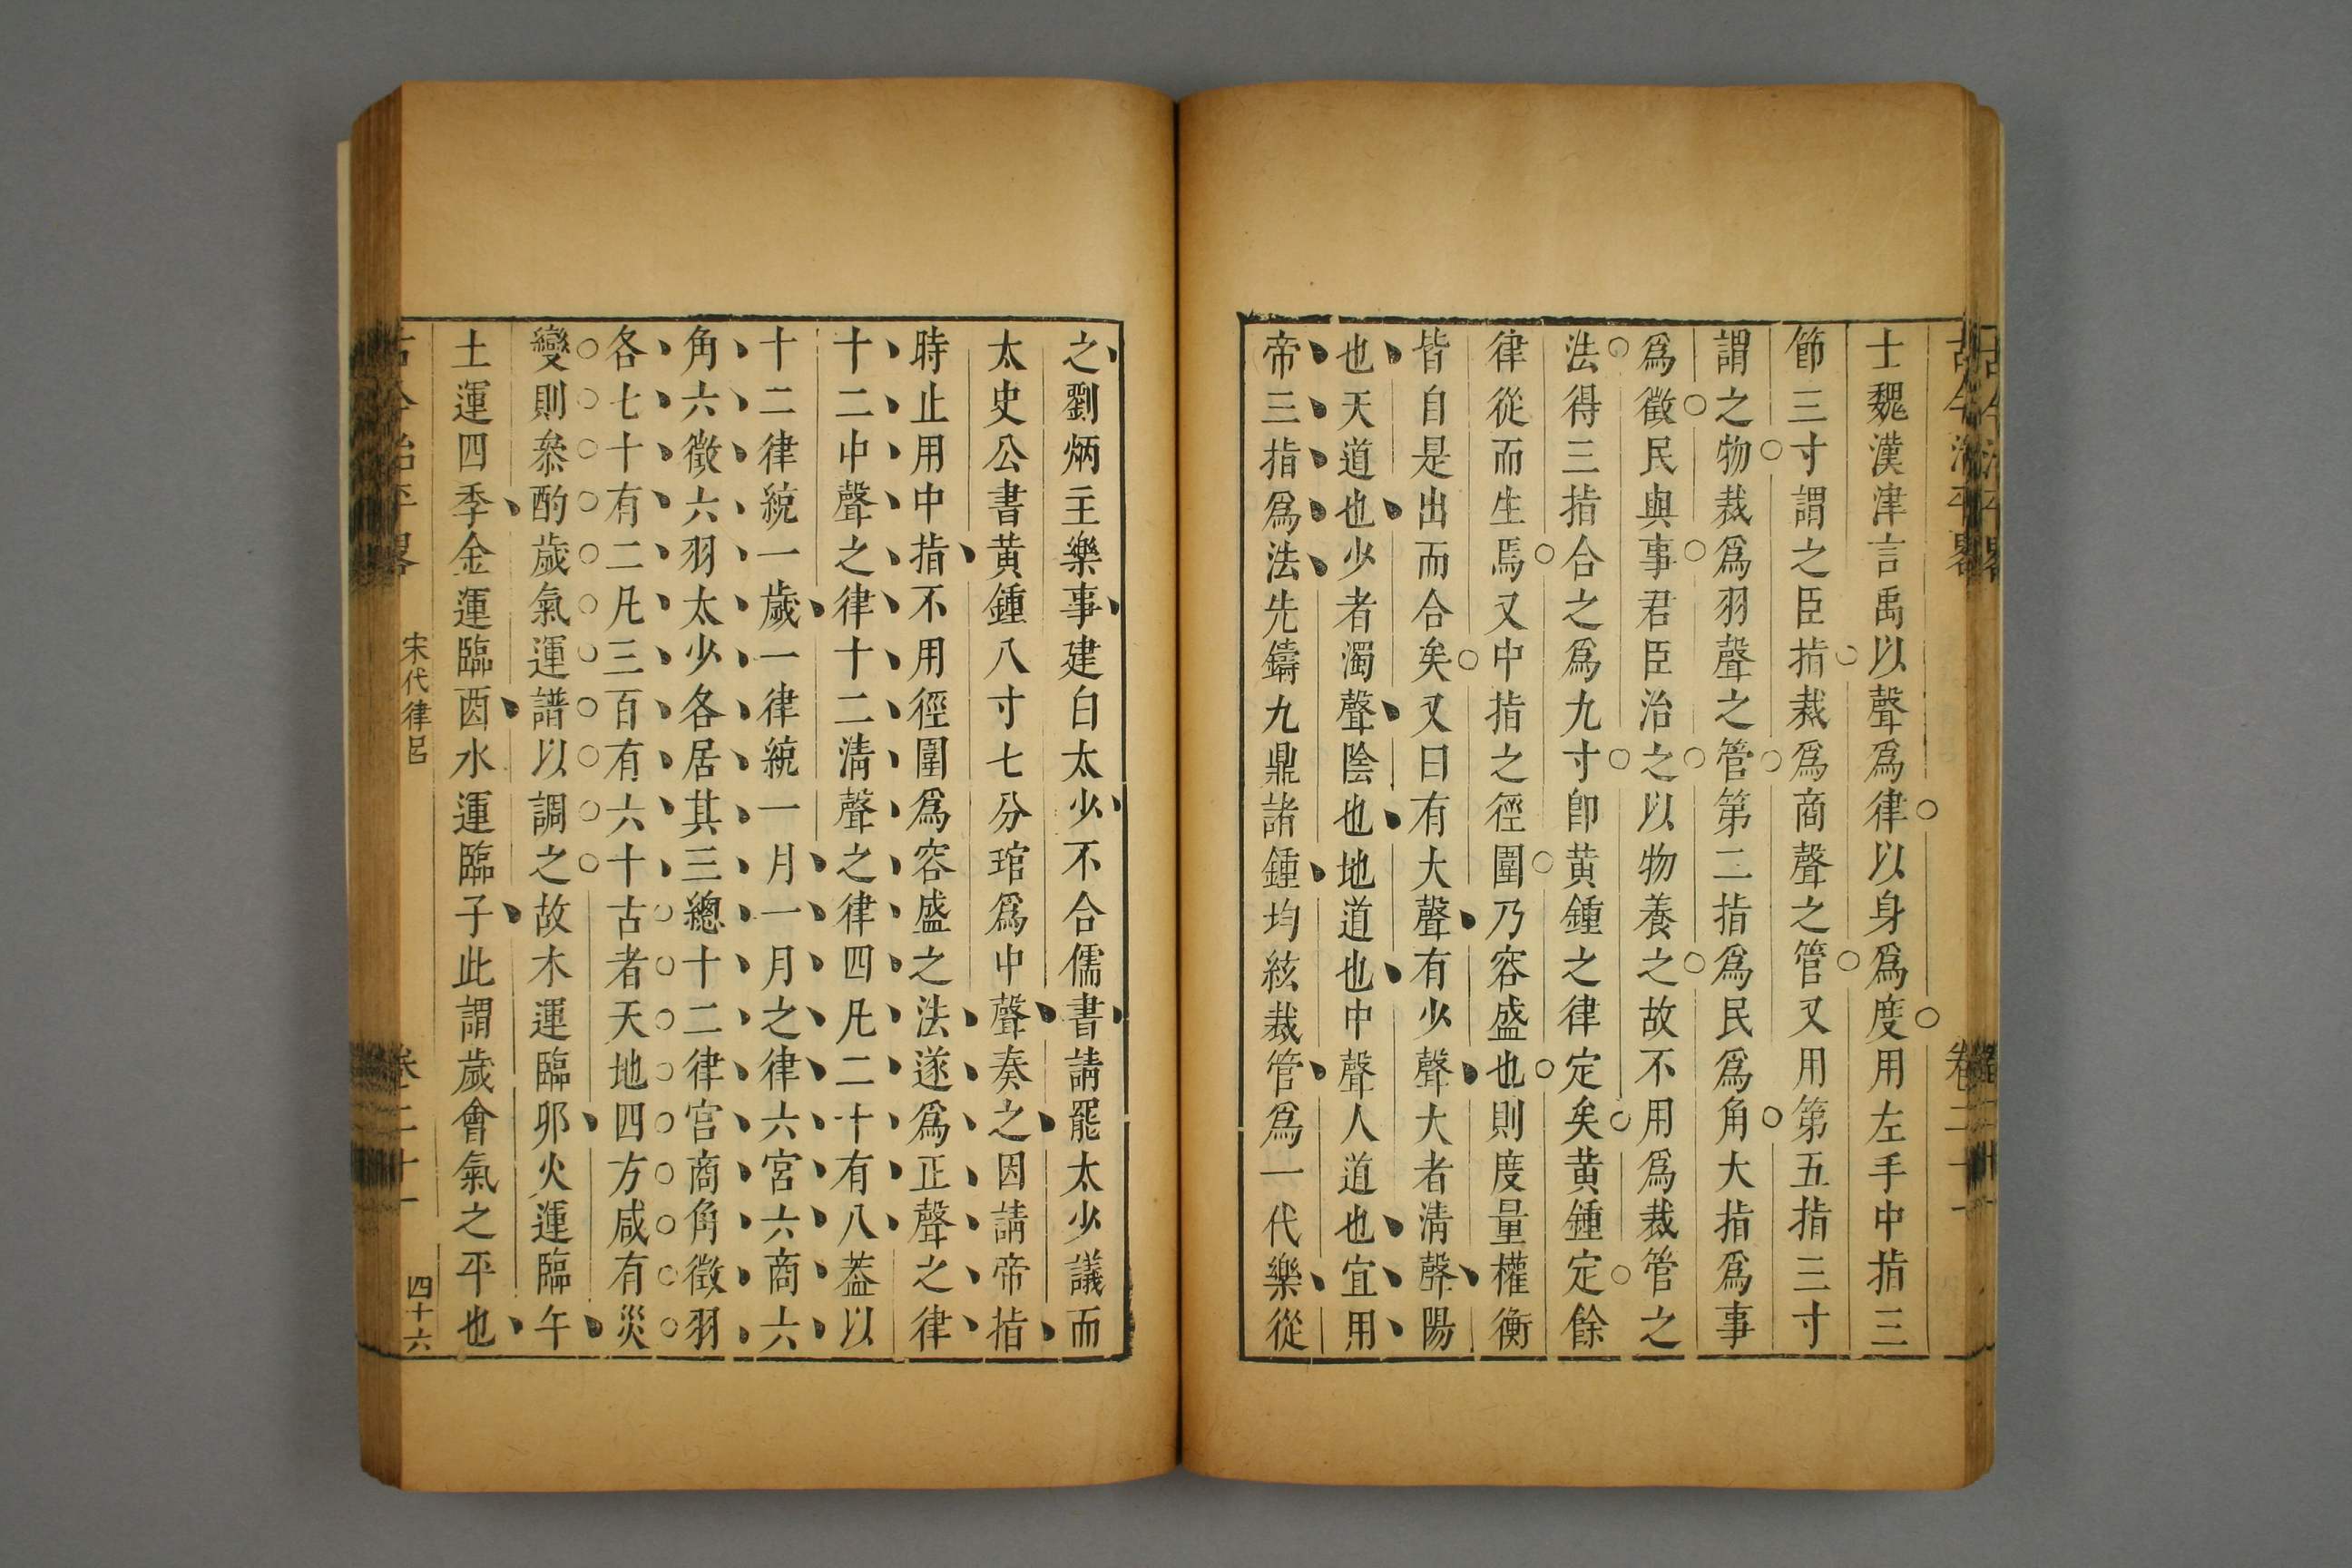 士魏漢津言禹以聲爲律以身爲度用左手中指三
節三寸謂之臣指裁爲商聲之管又用第五指三寸
謂之物裁爲羽聲之管第二指爲民爲角大指爲事
爲徵民與事君臣治之以物養之故不用爲裁管之
法得三指合之爲九寸卽黃鍾之律定矣黃鍾定餘
律從而生焉又中指之徑圍乃容盛也則度量權衡
皆自是出而合矣又曰有大聲有少聲大者淸聲陽
也天道也少者濁聲陰也地道也中聲人道也宜用
帝三指爲法先鑄九鼎諸鍾均絃裁管爲一代樂從
之劉炳主樂事建白太少不合儒書請罷太少議而
太史公書黃鍾八寸七分琯爲中聲奏之因請帝指
時止用中指不用徑圍爲容盛之法遂爲正聲之律
十二中聲之律十二淸聲之律四凡二十有八葢以
十二律統一歲一律統一月一月之律六宮六商六
角六徵六羽太少各居其三總十二律宮商角徵羽
各七十有二凡三百有六十古者天地四方咸有災
變則叅酌歲氣運譜以調之故木運臨卯火運臨午
土運四季金運臨酉水運臨子此謂歲會氣之平也
古今治平畧
宋代律呂
卷二十一
四十六